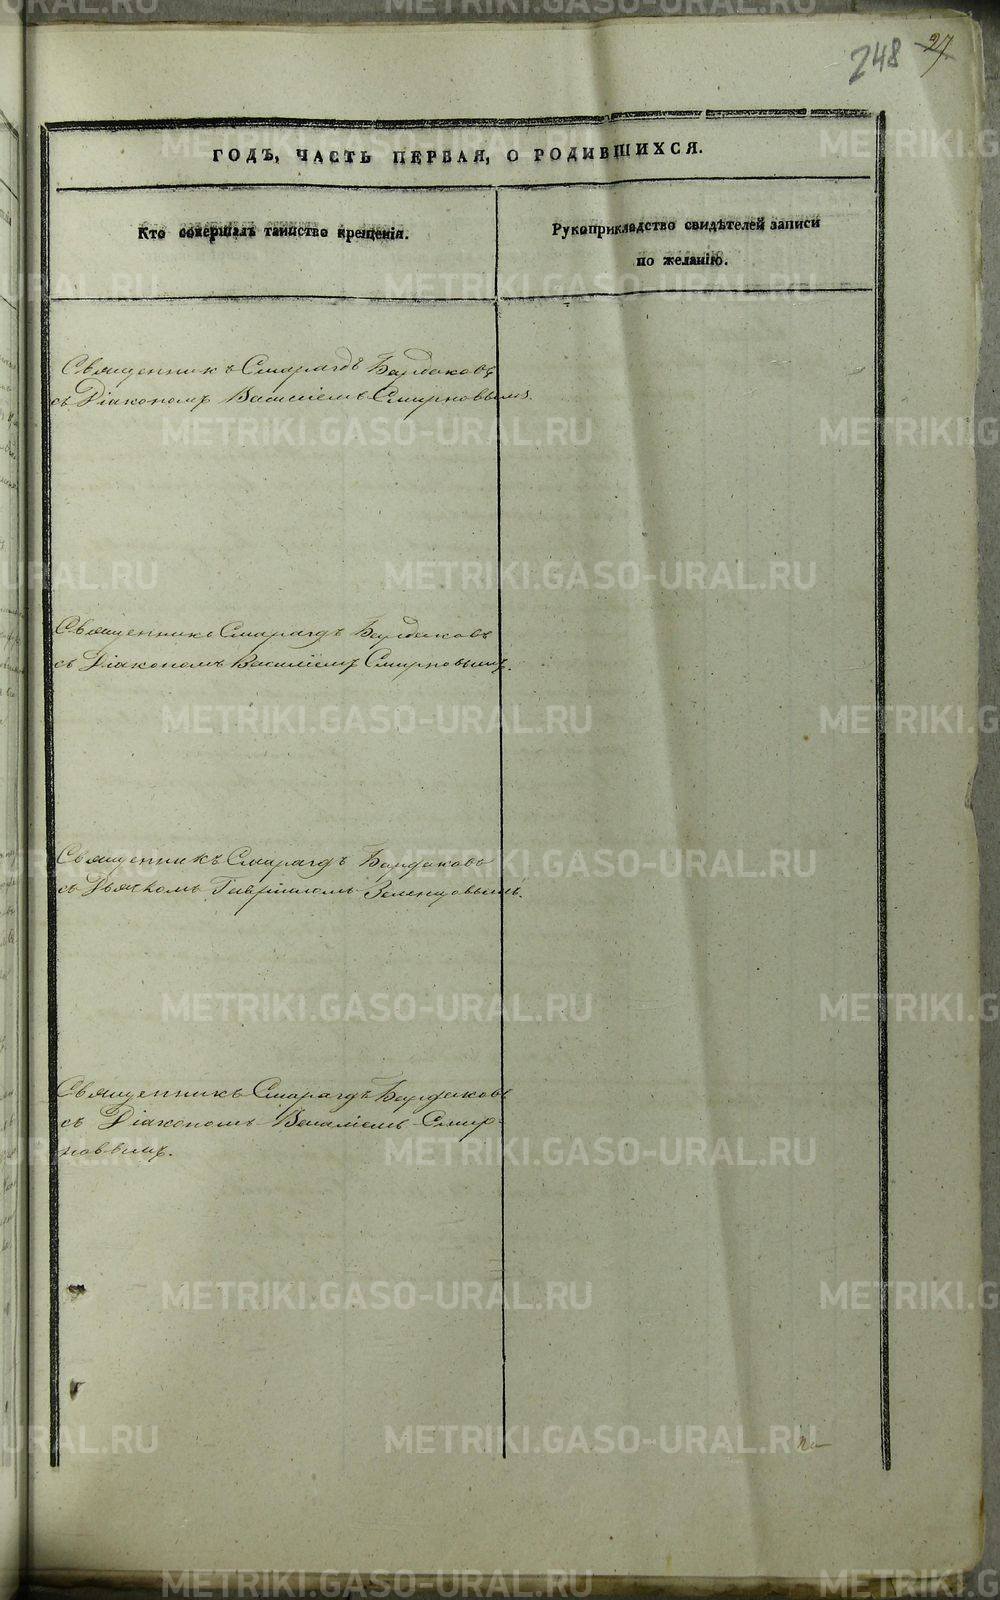 248 27
ГОДЪ, ЧАСТЬ ПЕРВАЯ, О РОДИВШИХСЯ.
Кто совершалъ таинство крещенія.
Рукоприкладство свидѣтелей записи
по желанію.
Священникъ Смарагдъ Бардаковъ
съ Діакономъ Василіемъ Смирновымъ.
Священникъ Смарагдъ Бардаковъ
съ Діакономъ Василіемъ Смирновымъ.
Священникъ Смарагдъ Бардаковъ
съ Дьячкомъ Гавріиломъ Зеленцовымъ.
Священникъ Смарагдъ Бардаковъ
съ Діакономъ Василіемъ Смир-
новымъ.
METRIKI.GASO-URAL.RU